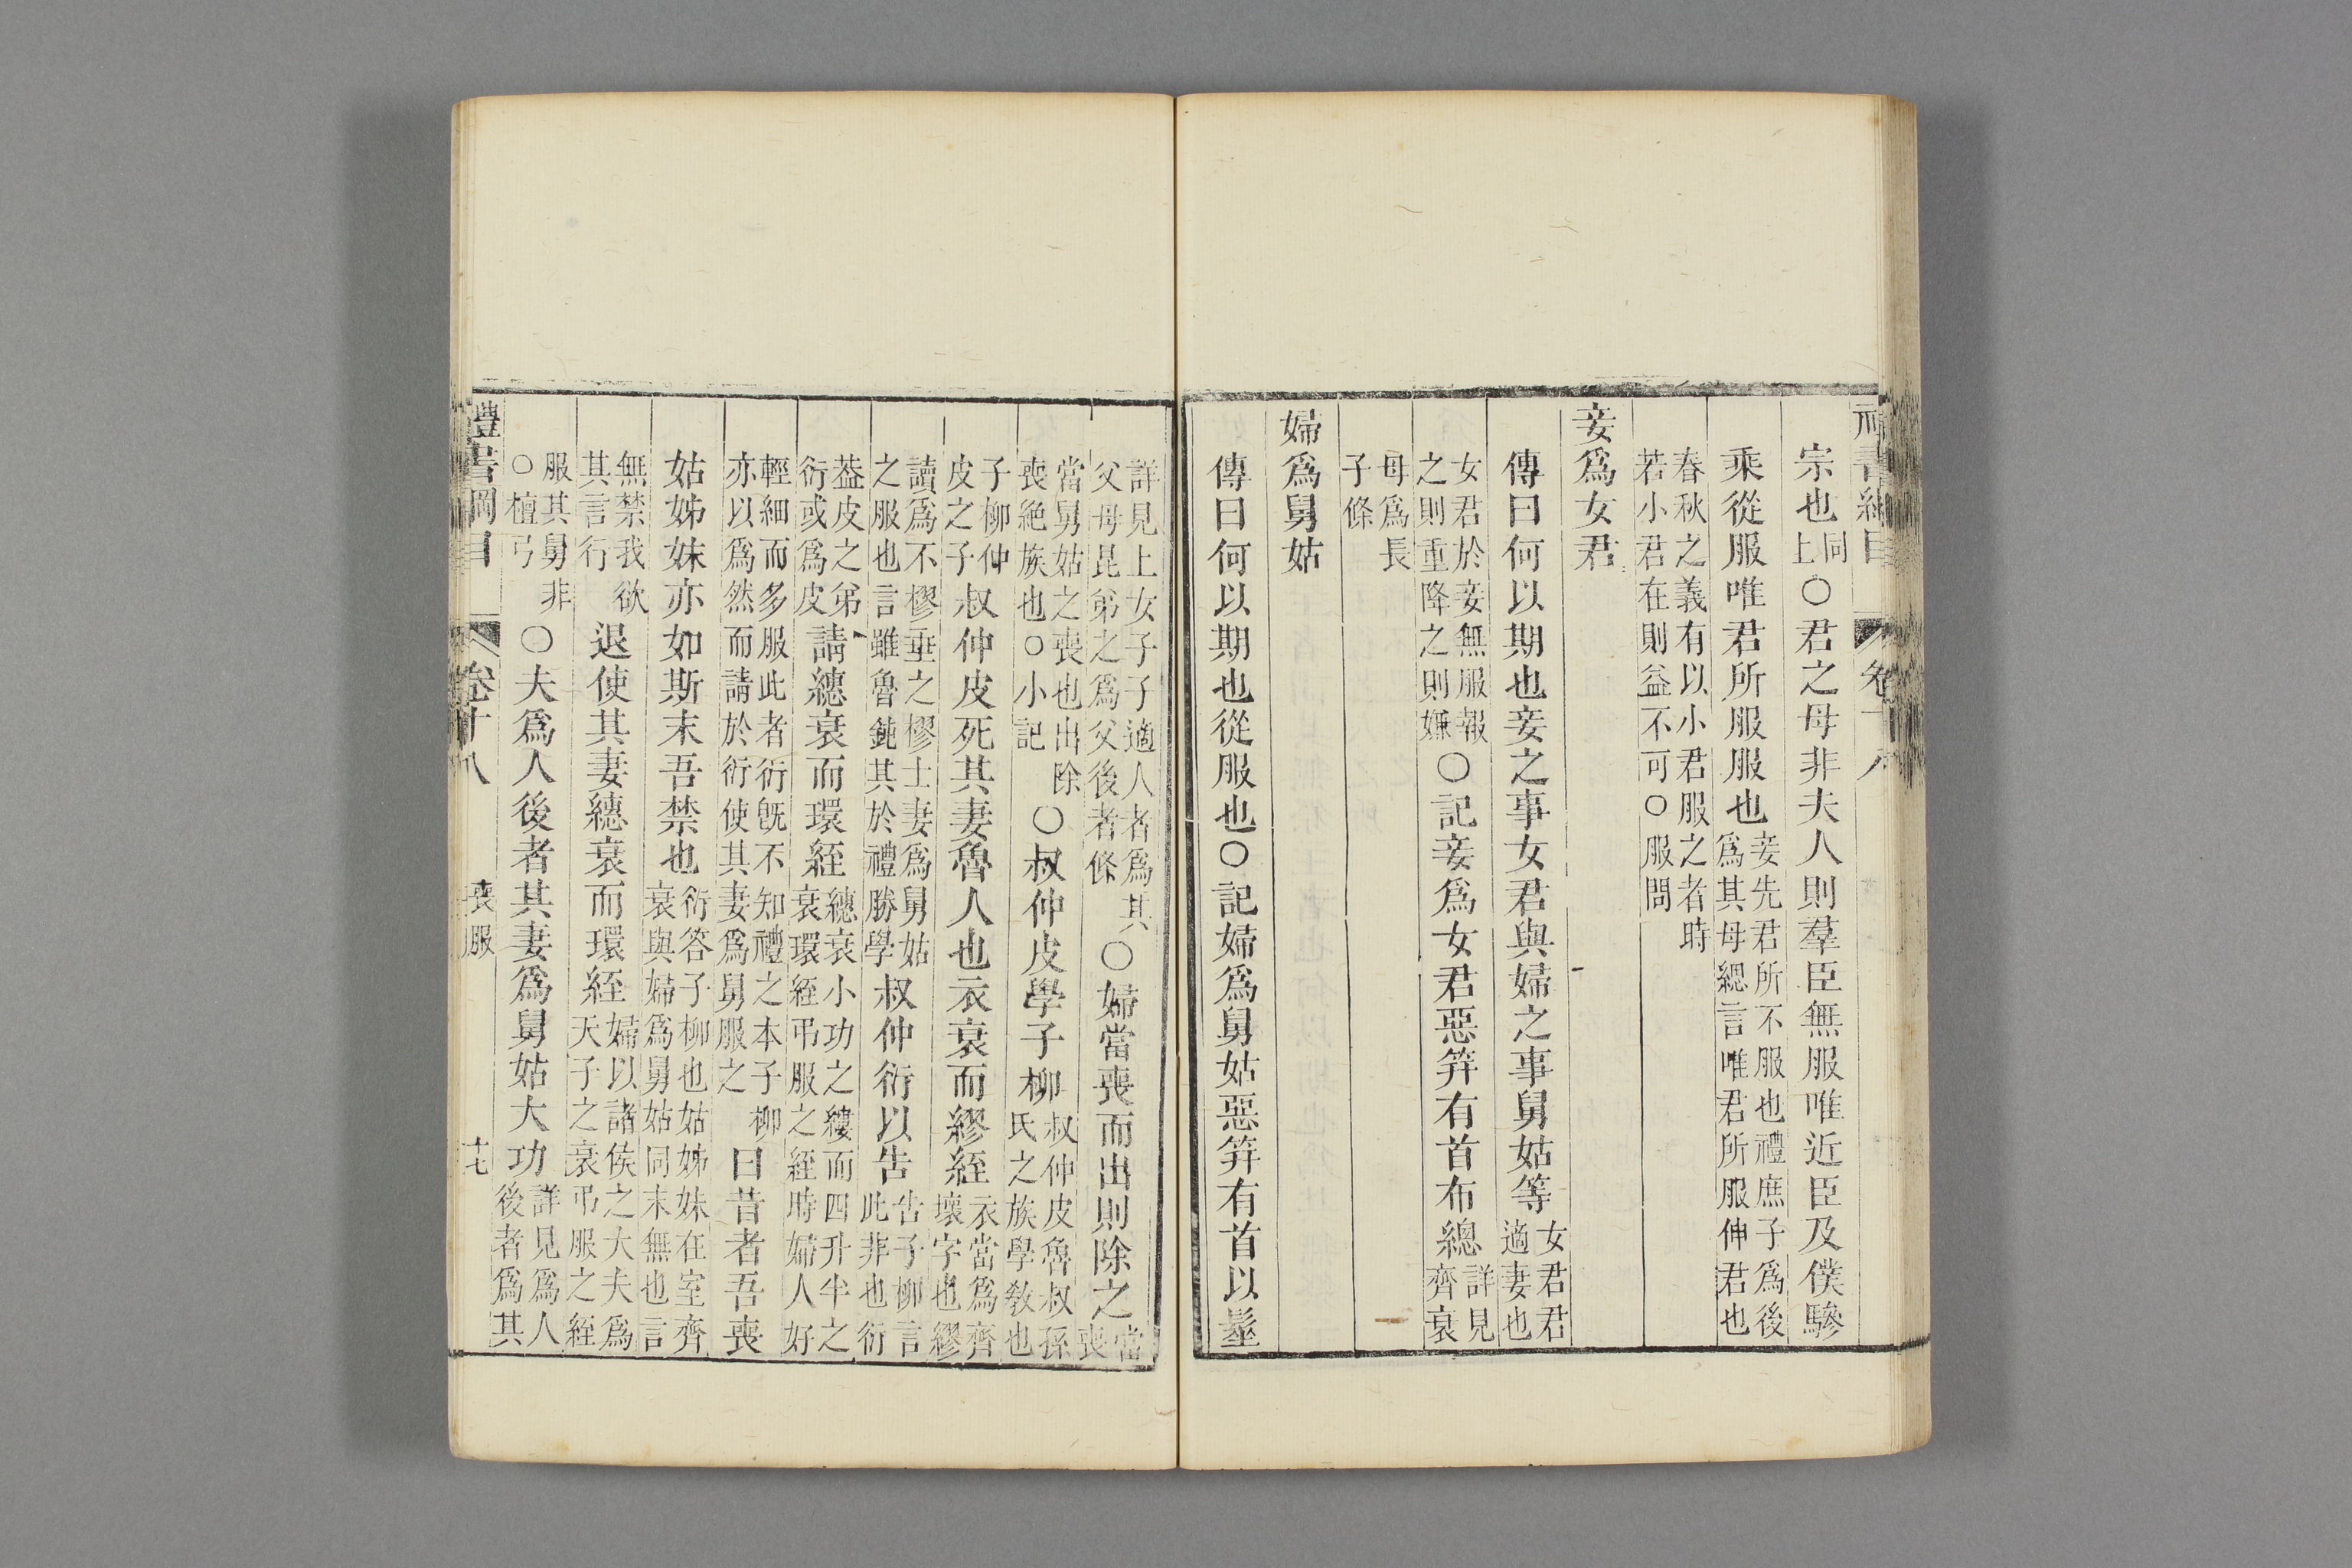 禮書綱目 卷十八
宗也同上○君之母非夫人則羣臣無服唯近臣及僕驂
乘從服唯君所服服也妾先君所不服也禮庶子爲後爲其母緦言唯君所服伸君也
春秋之義有以小君服之者時若小君在則益不可○服問
妾爲女君
傳曰何以期也妾之事女君與婦之事舅姑等女君君適妻也
女君於妾無服報之則重降之則嫌○記妾爲女君惡笄有首布總詳見齊衰
母爲長子條
婦爲舅姑
傳曰何以期也從服也○記婦爲舅姑惡笄有首以髽
詳見上女子子適人者爲其父母昆弟之爲父後者條○婦當喪而出則除之當喪
當舅姑之喪也出除喪絕族也○小記○叔仲皮學子柳叔仲皮魯叔孫氏之族學敎也
子柳仲皮之子叔仲皮死其妻魯人也衣衰而繆絰衣當爲齊壞字也繆
讀爲不樛垂之樛士妻爲舅姑之服也言雖魯鈍其於禮勝學叔仲衍以告告子柳言此非也衍
葢皮之弟衍或爲皮請繐衰而環絰繐衰小功之縷而四升半之衰環絰弔服之絰時婦人好
輕細而多服此者衍旣不知禮之本子柳亦以爲然而請於衍使其妻爲舅服之曰昔者吾喪
姑姊妹亦如斯末吾禁也衍答子柳也姑姊妹在室齊衰與婦爲舅姑同末無也言
無禁我欲其言行退使其妻繐衰而環絰婦以諸侯之大夫爲天子之衰弔服之絰
服其舅非○檀弓○夫爲人後者其妻爲舅姑大功詳見爲人後者爲其
禮書綱目 卷十八 喪服 十七